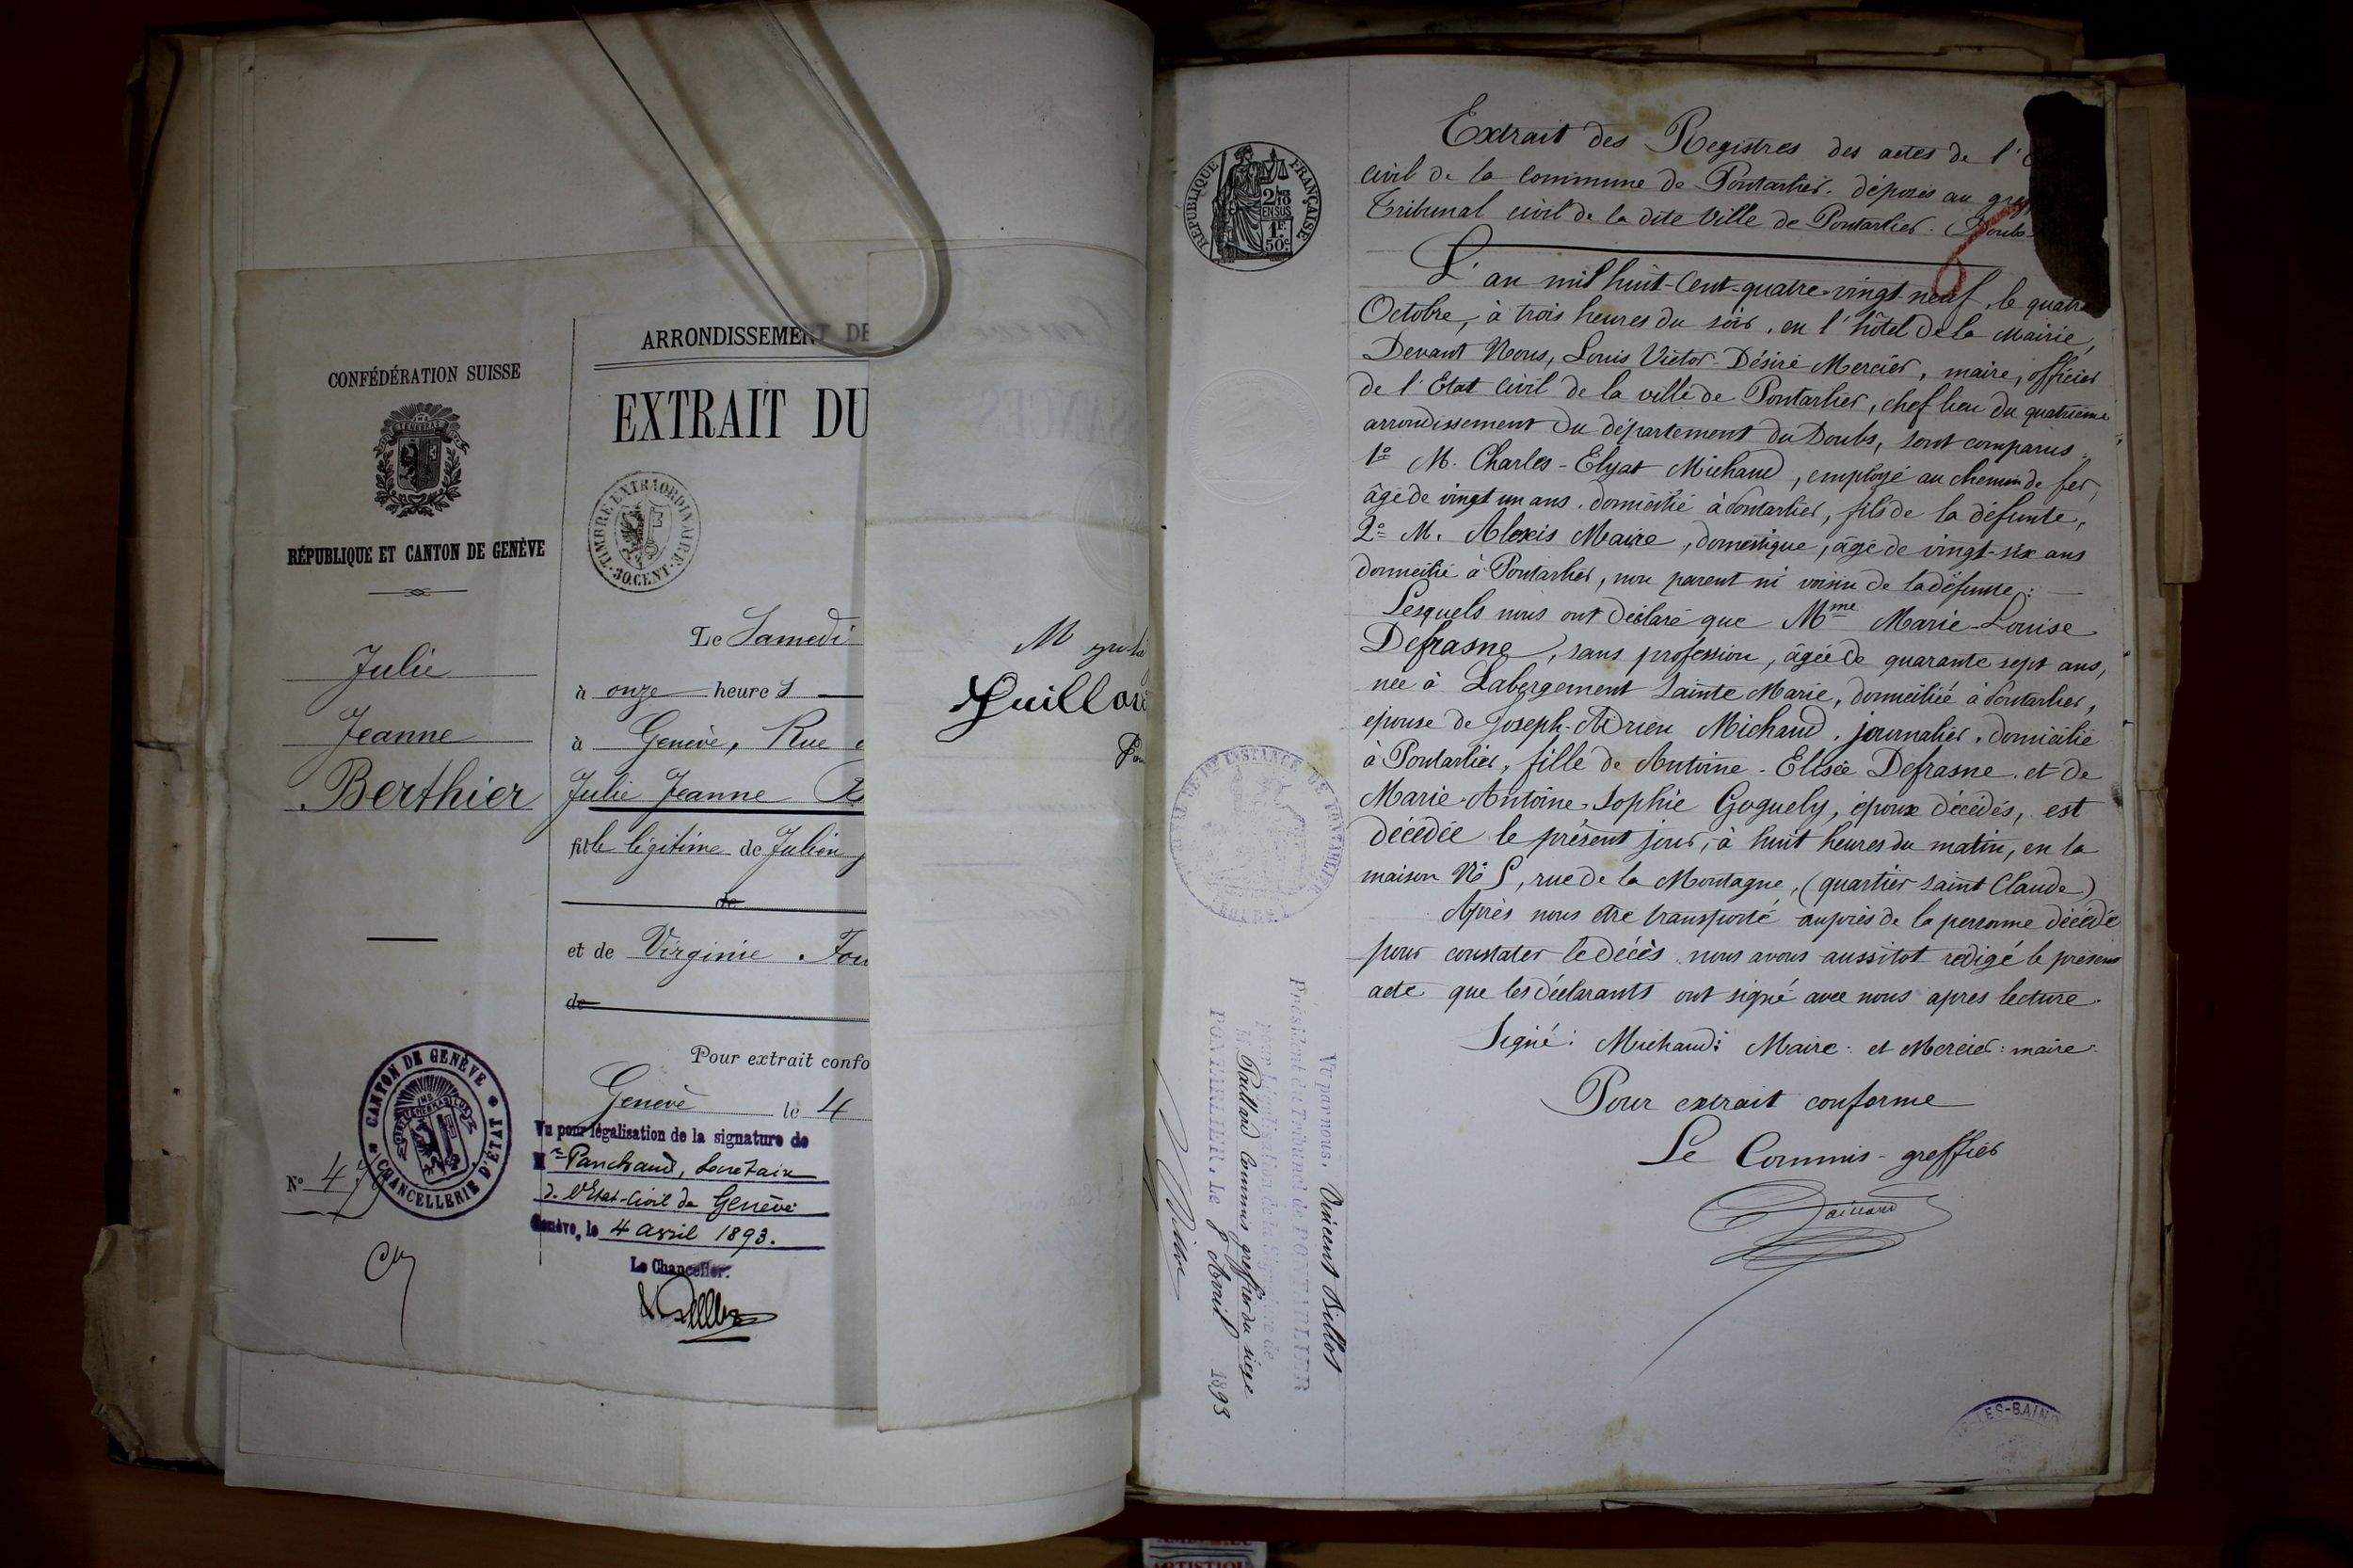 CONFÉDÉRATION SUISSE
RÉPUBLIQUE ET CANTON DE GENÈVE
Julie
Jeanne
Berthier
N° 47
CANTON DE GENÈVE
CHANCELLERIE D'ÉTAT
ARRONDISSEMENT DE
EXTRAIT DU
TIMBRE EXTRAORDINAIRE
30 CENT.
Le Samedi
à onze heures
à Genève, Rue
Julie Jeanne B
fille légitime de Julien
de
et de Virginie Fou
de
Pour extrait confo
Genève le 4
Vu pour légalisation de la signature de
Mr Panchaud, Secretaire
de l'Etat-Civil de Genève
Genève, le 4 avril 1893.
Le Chancelier:
M
RÉPUBLIQUE FRANÇAISE
2/10
EN SUS
1F
50c
Extrait des Registres des actes de l'é
civil de la commune de Pontarlier. déposés au gref
Tribunal civil de la dite Ville de Pontarlier. (Doubs
L'an mil huit-cent-quatre-vingt-neuf, le quatre
Octobre, à trois heures du soir, en l'hôtel de la Mairie,
Devant Nous, Louis Victor-Désiré Mercier, maire, officier
de l'Etat civil de la ville de Pontarlier, chef lieu du quatrième
arrondissement du département du Doubs, sont comparus:
1° M. Charles-Elyat Michaud, employé au chemin de fer,
âgé de vingt un ans, domicilié à Pontarlier, fils de la défunte,
2° M. Alexis Maire, domestique, âgé de vingt-six ans
domicilié à Pontarlier, non parent ni voisin de la défunte:
Lesquels nous ont déclaré que Mme Marie-Louise
Defrasne, sans profession, âgée de quarante sept ans,
née à Labergement Sainte Marie, domiciliée à Pontarlier,
épouse de Joseph-Adrien Michaud, journalier, domicilié
à Pontarlier, fille de Antoine-Elisée Defrasne et de
Marie-Antoine-Sophie Goguely, époux décédés, est
décédée le présent jour, à huit heures du matin, en la
maison N° 5, rue de la Montagne, (quartier Saint Claude)
Après nous être transporté auprès de la personne décédée
pour constater le décès nous avons aussitot rédigé le présent
acte que les déclarants ont signé avec nous après lecture.
Signé: Michaud: Maire: et Mercier: maire:
Pour extrait conforme
Le Commis-greffier
TRIBUNAL DE 1re INSTANCE DE PONTARLIER
Vu par nous, Vincent Billot
Président du Tribunal de PONTARLIER
pour Légalisation de la signature de
M. Paillard Commis greffier du siège
PONTARLIER, Le 8 Avril 1893
LES-BAINS